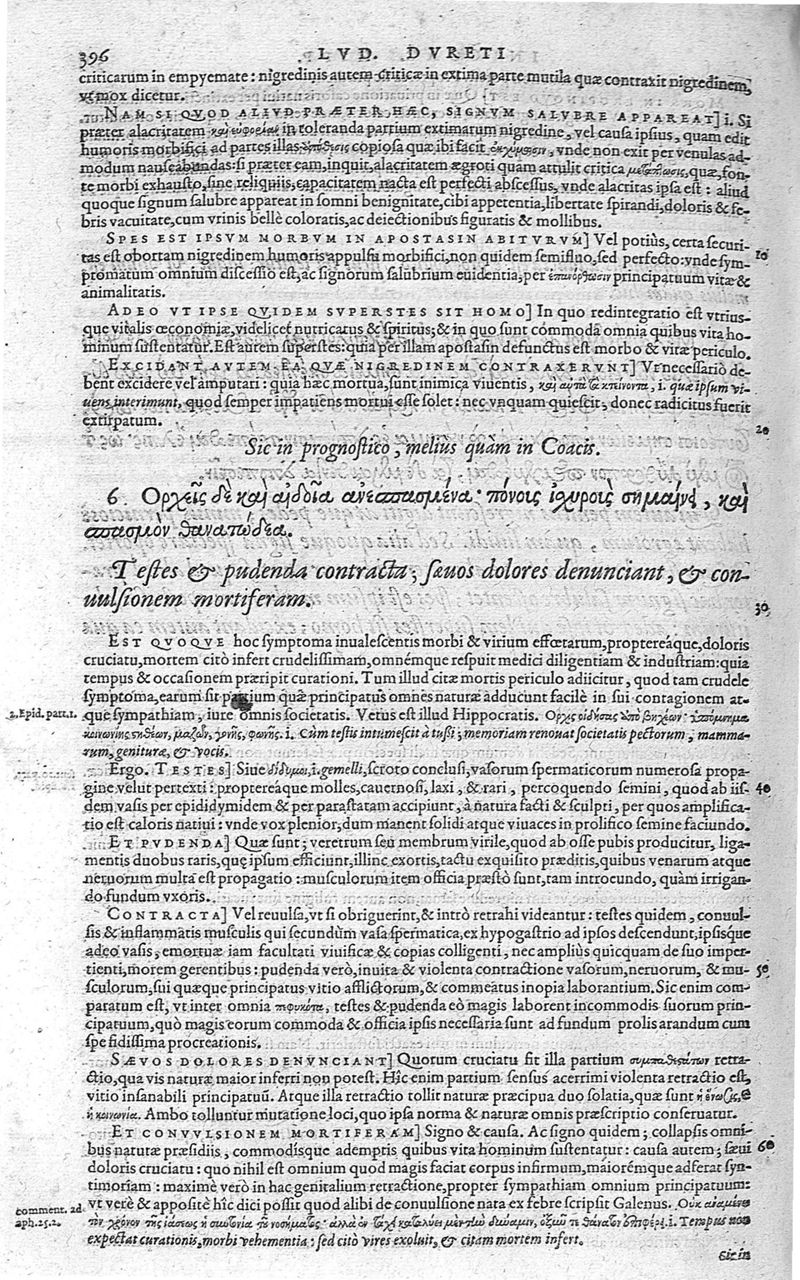 396 LVD. DVRETI
criticarum in empyemate: nigredinis autem criticæ in extima parte mutila quæ contraxit nigredinem,
vt mox dicetur.
NAM SI QVOD ALIVD PRÆTER HÆC, SIGNVM SALVBRE APPAREAT] i. Si
præter alacritatem in toleranda partium extimarum nigredine, vel causa ipsius, quam edit
humoris morbifici ad partes illas copiosa quæ ibi facit vnde non exit per venulas ad-
modum nauseabundas: si præter eam, inquit, alacritatem ægroti quam attulit critica quæ, fon-
te morbi exhausto, sine reliquiis, capacitatem nacta est perfecti abscessus, vnde alacritas ipsa est: aliud
quoque signum salubre appareat in somni benignitate, cibi appetentia, libertate spirandi, doloris & fe-
bris vacuitate, cum vrinis bellè coloratis, ac deiectionibus figuratis & mollibus.
SPES EST IPSVM MORBVM IN APOSTASIN ABITVRVM] Vel potiùs, certa securi-
tas est obortam nigredinem humoris appulsu morbifici, non quidem semifluo, sed perfecto: vnde sym- 10
ptomatum omnium discessio est, ac signorum salubrium euidentia, per ἐπανόρθωσιν principatuum vitæ &
animalitatis.
ADEO VT IPSE QVIDEM SVPERSTES SIT HOMO] In quo redintegratio est vtrius-
que vitalis œconomiæ, videlicet nutricatus & spiritus; & in quo sunt commoda omnia quibus vita ho-
minum sustentatur. Est autem superstes: quia per illam apostasin defunctus est morbo & vitæ periculo.
EXCIDANT AVTEM EA QVÆ NIGREDINEM CONTRAXERVNT] Vt necessariò de-
bent excidere vel amputari: quia hæc mortua, sunt inimica viuentis, i. quæ ipsum vi-
uens interimunt, quod semper impatiens mortui esse solet: nec vnquam quiescit, donec radicitus fuerit
extirpatum. 20
Sic in prognostico, melius quàm in Coacis.
6. Ορχεῖς δὲ καὶ αἰδοῖα ἀνεσπασμένα· πόνους ἰσχυροὺς σημαίνει, καὶ
σπασμὸν θανατώδεα.
Testes & pudenda contracta; sæuos dolores denunciant, & con-
uulsionem mortiferam. 30
EST QVOQVE hoc symptoma inualescentis morbi & virium effœtarum, proptereáque, doloris
cruciatu, mortem citò infert crudelissimam, omnémque respuit medici diligentiam & industriam: quia
tempus & occasionem præripit curationi. Tum illud citæ mortis periculo adiicitur, quod tam crudele
symptoma, earum sit partium quæ principatus omnes naturæ adducunt facilè in sui contagionem at-
2. Epid. part. 1. que sympathiam, iure omnis societatis. Vetus est illud Hippocratis.
i. Cum testis intumescit à tussi; memoriam renouat societatis pectorum, mamma-
rum, genituræ, & vocis.
Ergo. TESTES] Siue δίδυμοι, i. gemelli, scroto conclusi, vasorum spermaticorum numerosa propa-
gine velut pertexti: proptereáque molles, cauernosi, laxi, & rari, percoquendo semini, quod ab iis- 40
dem vasis per epididymidem & per parastatam accipiunt, à natura facti & sculpti, per quos amplifica-
tio est caloris natiui: vnde vox plenior, dum manent solidi atque viuaces in prolifico semine faciundo.
ET PVDENDA] Quæ sunt; veretrum seu membrum virile, quod ab osse pubis producitur, liga-
mentis duobus raris, quę ipsum efficiunt, illinc exortis, tactu exquisito præditis, quibus venarum atque
neruorum multa est propagatio: musculorum item officia præstò sunt, tam introcundo, quàm irrigan-
do fundum vxoris.
CONTRACTA] Vel reuulsa, vt si obriguerint, & intrò retrahi videantur: testes quidem, conuul-
sis & inflammatis musculis qui secundùm vasa spermatica, ex hypogastrio ad ipsos descendunt, ipsisque
adeo vasis, emortuæ iam facultati viuificæ & copias colligenti, nec ampliùs quicquam de suo imper-
tienti, morem gerentibus: pudenda verò, inuita & violenta contractione vasorum, neruorum, & mu- 50
sculorum, sui quæque principatus vitio afflictorum, & commeatus inopia laborantium. Sic enim com-
paratum est, vt inter omnia πεφυκότα, testes & pudenda eò magis laborent incommodis suorum prin-
cipatuum, quò magis eorum commoda & officia ipsis necessaria sunt ad fundum prolis arandum cum
spe fidissima procreationis.
SÆVOS DOLORES DENVNCIANT] Quorum cruciatu fit illa partium retra-
ctio, qua vis naturæ maior inferri non potest. Hîc enim partium sensus acerrimi violenta retractio est,
vitio insanabili principatuũ. Atque illa retractio tollit naturæ præcipua duo solatia, quæ sunt ἡ ἕνωσις, &
ἡ κοινωνία. Ambo tolluntur mutatione loci, quo ipsa norma & naturæ omnis præscriptio conseruatur.
ET CONVVLSIONEM MORTIFERAM] Signo & causa. Ac signo quidem; collapsis omni-
bus naturæ præsidiis, commodisque ademptis quibus vita hominum sustentatur: causa autem; sæui 60
doloris cruciatu: quo nihil est omnium quod magis faciat corpus infirmum, maiorémque adferat syn-
timoriam: maximè verò in hac genitalium retractione, propter sympathiam omnium principatuum:
comment. ad vt verè & appositè hîc dici possit quod alibi de conuulsione nata ex febre scripsit Galenus.
aph. 25. 2. i. Tempus non
expectat curationis, morbi vehementia: sed citò vires exoluit, & citam mortem infert.
Sic in